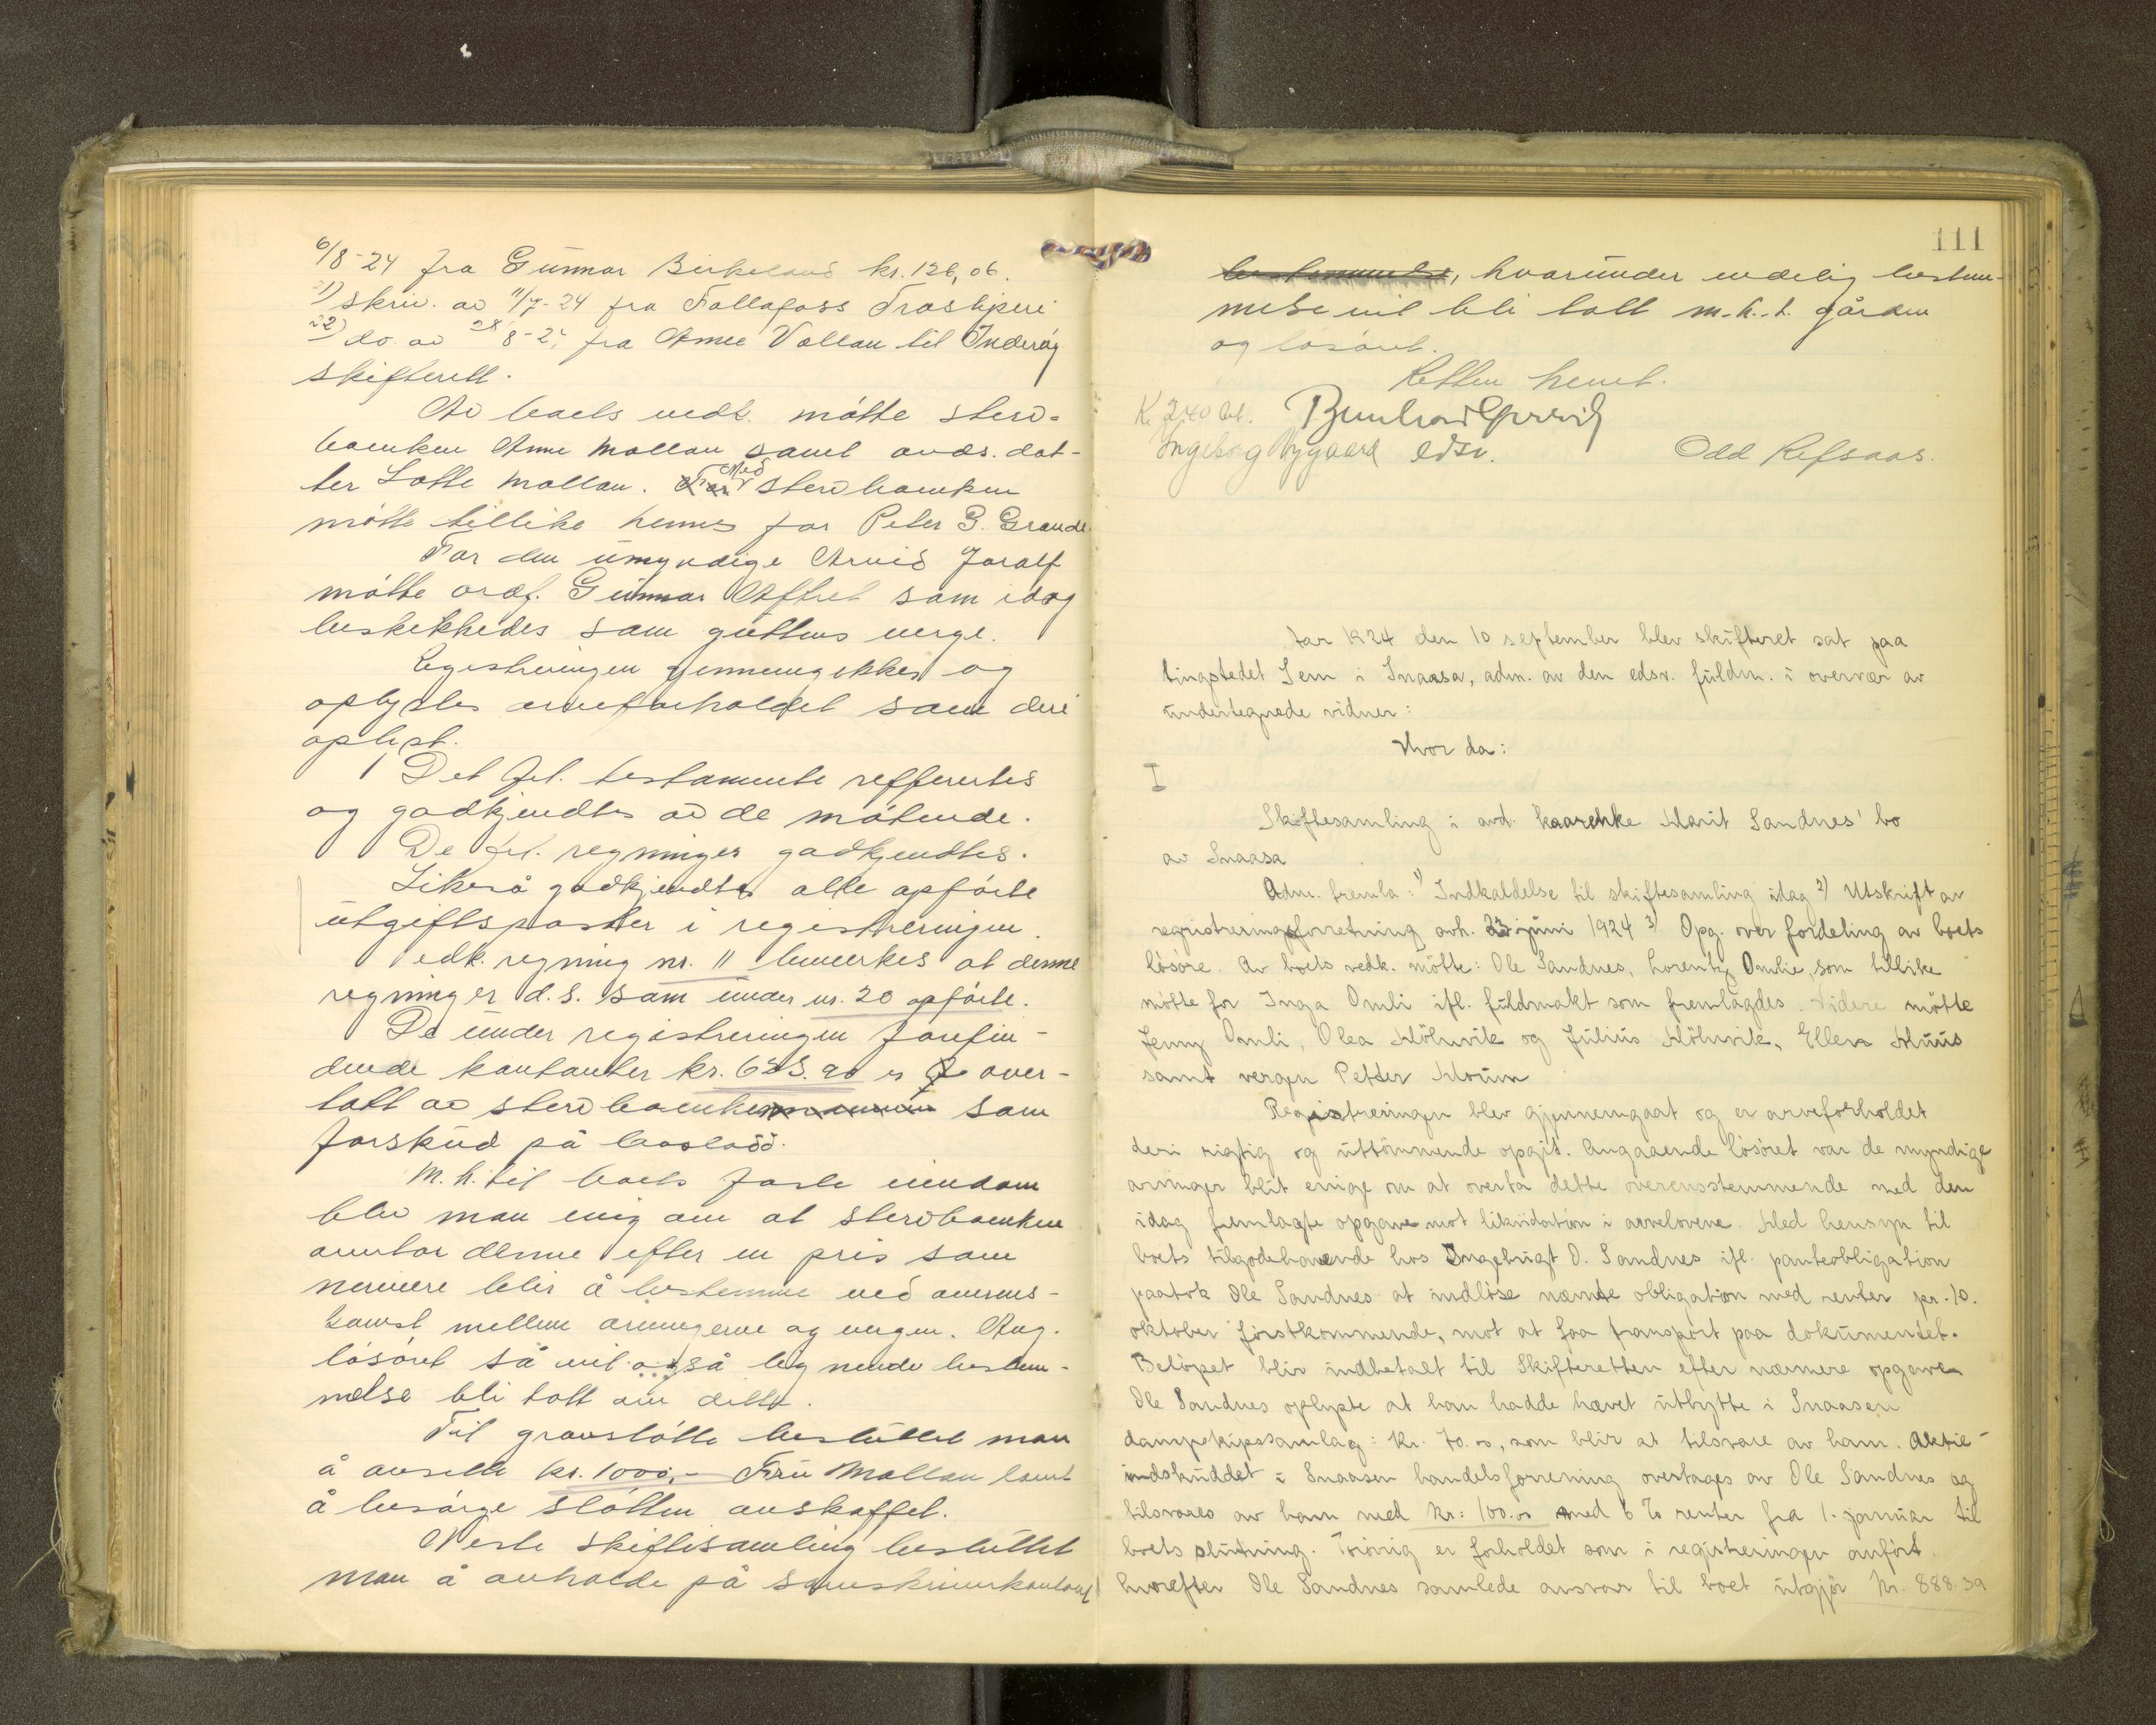 6/8-24 fra Gunnar Birkeland kr. 126,06.
21) skriv. av 11/7-24 fra Follafoss Træsliperi
22) do. av 28/8-24 fra Anne Mollan til Inderøy
skifterett.
Av boets vedk. møtte sterv-
boenken Anne Mollan samt avds. dat-
ter Lotte Mollan. Med stervboenken
møtte tillike hennes far Peter G. Grande.
For den umyndige Arvid Joralf
møtte ordf. Gunnar Aftret som idag
beskikkedes som guttens verge.
Registreringen gjennemgikkes og
oplystes arveforholdet som deri
oplyst.
Det frl. testamente refferertes
og godkjendtes av de møtende.
De frl. regninger godkjendtes.
Likeså godkjendtes alle opførte
utgiftsposter i registreringen.
Vedk. regning nr. 11 bemerkes at denne
regning er d. s. som under nr. 20 opførte.
De under registreringen forefin-
dende kontanter kr. 623.90 er over-
tatt av stervboenken som
forskud på boslodd.
M. h. til boets faste eiendom
blev man enig om at stervboenken
overtar denne efter en pris som
nermere blir å bestemme ved overens-
komst mellem arvingerne og vergen. Ang.
løsøret så vil også lignende bestem-
melse bli tatt om dette.
Til gravstøtte besluttet man
å avsette kr. 1000,- Fru Mollan lovet
å besørge støtten anskaffet.
Neste skiftesamling besluttet
man å avholde på sorenskriverkontoret
111
bestemmelse, hvorunder endelig bestem-
melse vil bli tatt m.h.t. gården
og løsøret.
Retten hevet.
K. 240 bl.
Ingeborg Nygaard edsv.
Odd Refsaas.
Aar 1924 den 10 september blev skifteret sat paa
tingstedet Sem i Snaasa, adm. av den edsv. fuldm. i overvær av
undertegnede vidner:
Hvor da:
I
Skiftesamling i avd. kaarenke Marit Sandnes' bo
av Snaasa
Adm. fremla: 1) Indkaldelse til skiftesamling idag 2) Utskrift av
registreringsforretning avh. 23 juni 1924 3) Opg. over fordeling av boets
løsøre. Av boets vedk. møtte: Ole Sandnes, Lorentz Omlie, som tillike
møtte for Inga Omli ifl. fuldmakt som fremlagdes. Videre møtte
Jenny Omli, Olea Mølnvik og Julius Mølnvik, Ellen Muus
samt vergen Petter Moum
Registreringen blev gjennemgaat og er arveforholdet
deri rigtig og uttømmende opgit. Angaaende løsøret var de myndige
arvinger blit enige om at overta dette overensstemmende med den
idag fremlagte opgave mot likvidation i arvelovene. Med hensyn til
boets tilgodehavende hos Ingebrigt O. Sandnes ifl. panteobligation
paatok Ole Sandnes at indløse nævnte obligation med renter pr. 10.
oktober førstkommende, mot at faa transport paa dokumentet.
Beløpet blir indbetalt til Skifteretten efter nærmere opgave
Ole Sandnes oplyste at han hadde hævet utbytte i Snaasen
dampskipssamlag: Kr. 70.00, som blir at tilsvare av ham. Aktie-
indskuddet i Snaasen handelsforrening overtages av Ole Sandnes og
tilsvares av ham med kr: 100.00 med 6 % renter fra 1. januar til
boets slutning. Forøvrig er forholdet som i registreringen anført,
hvorefter Ole Sandnes samlede ansvar til boet utgjør kr. 888.39